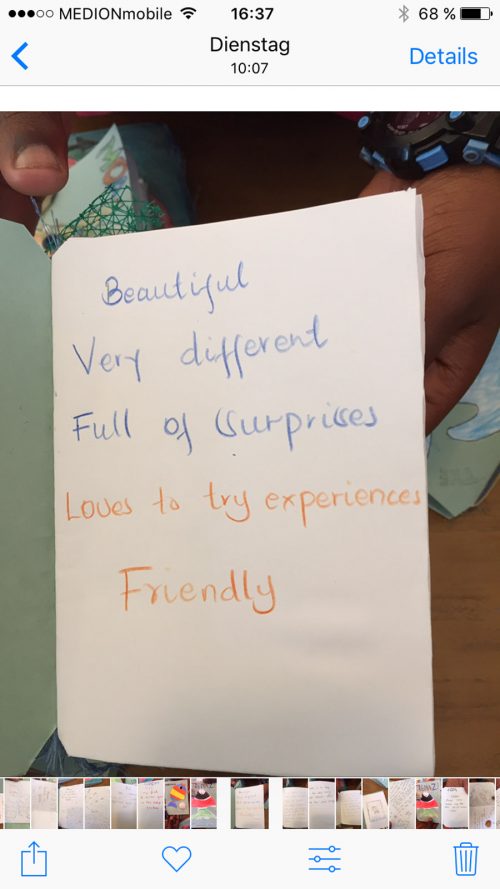 MEDIONmobile
16:37
68 %
Dienstag
10:07
Details
Beautiful
Very different
Full of Surprises
Loves to try experiences
Friendly